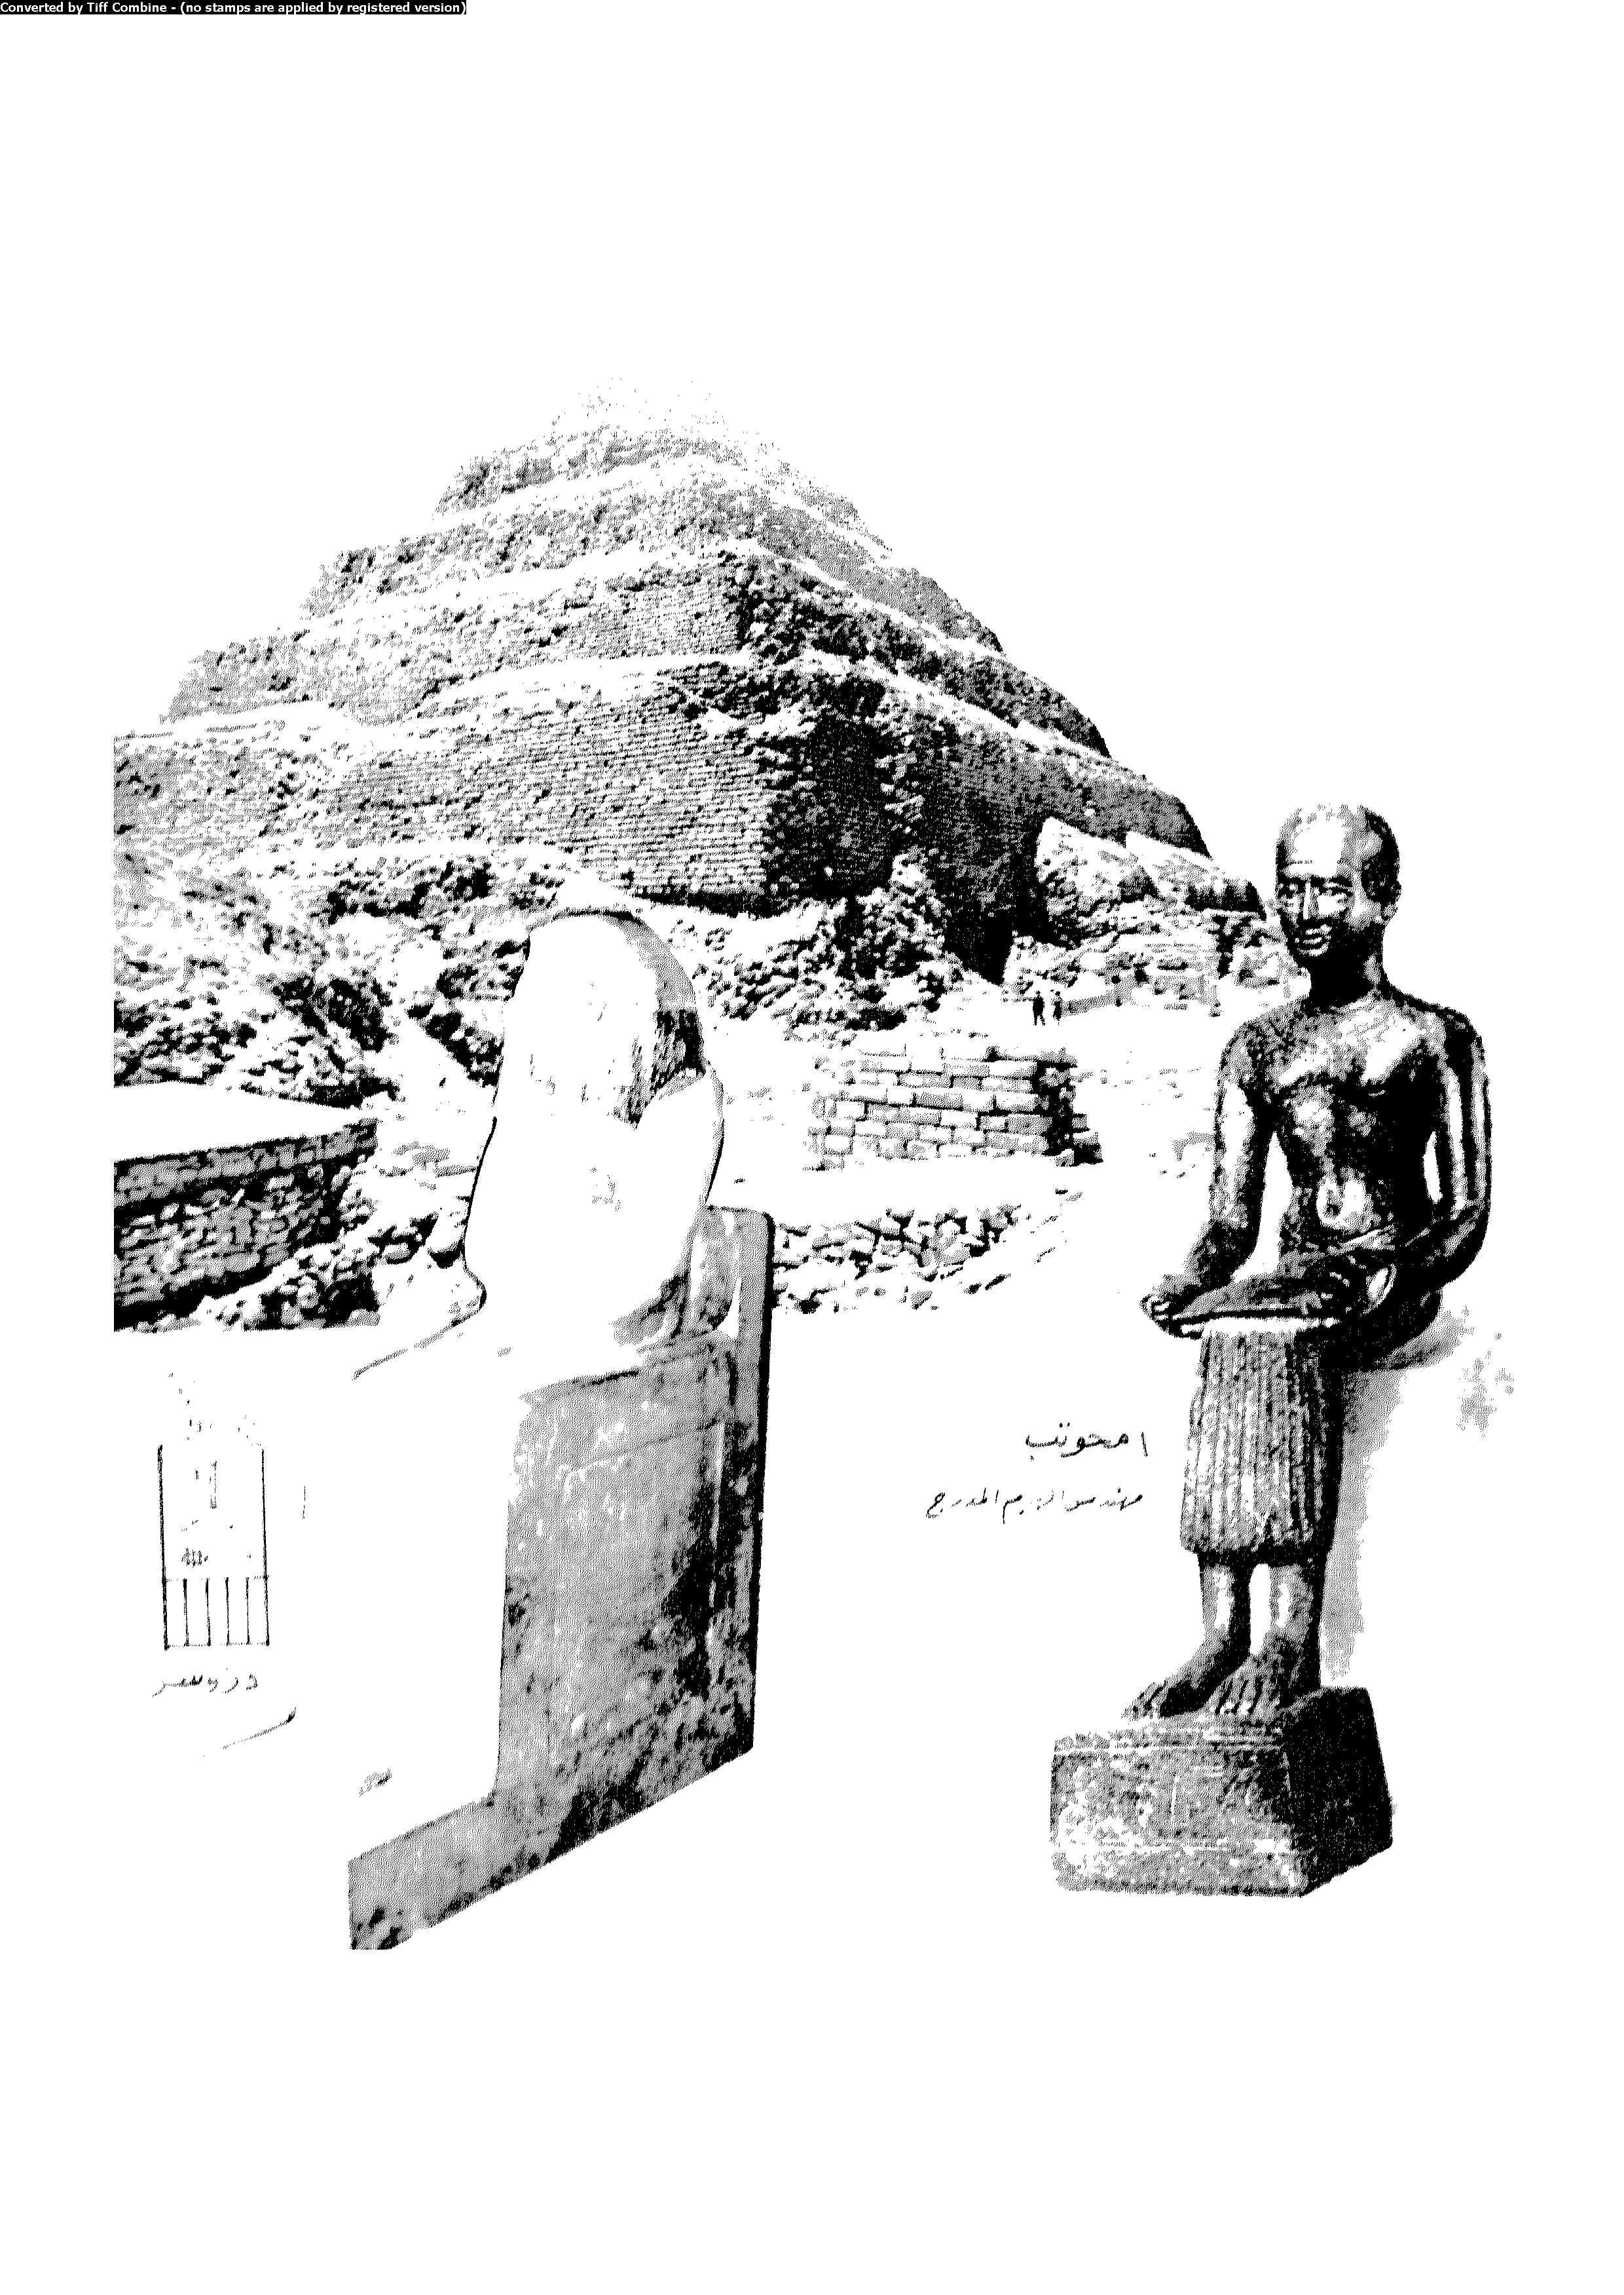 Converted by Tiff Combine - (no stamps are applied by registered version)
امحوتب
مهندس الهرم المدرج
زوسر